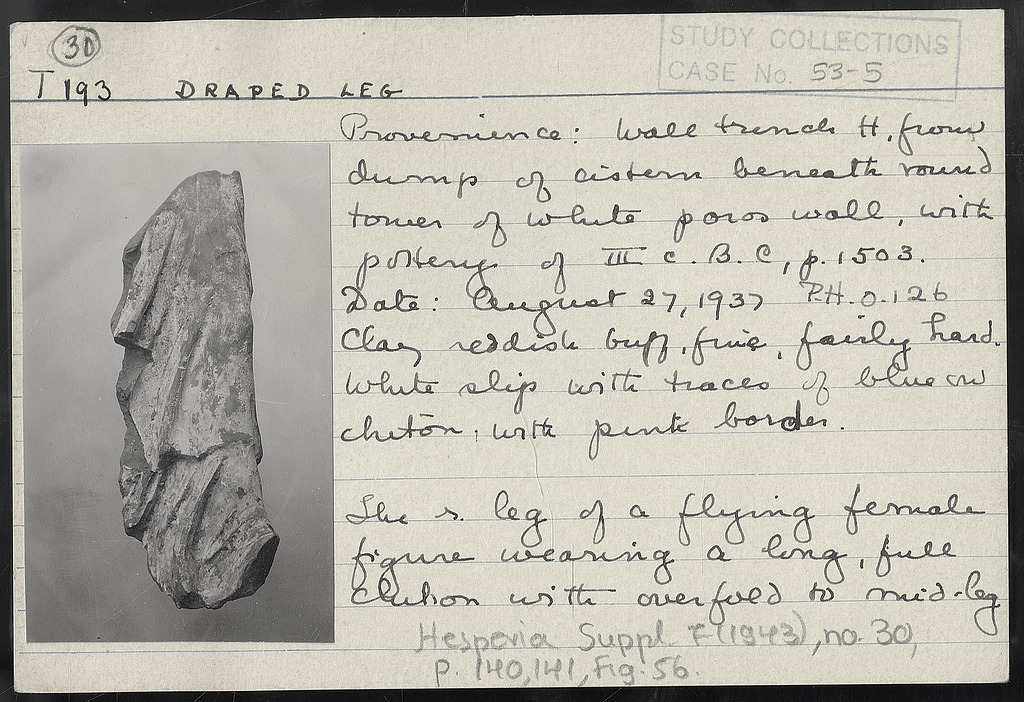 30
STUDY COLLECTIONS
CASE No. 53-5
T 193 DRAPED LEG
Provenience: Wall trench H, from
dump of cistern beneath round
tower of white poros wall, with
pottery of III c. B.C, p. 1503.
Date: August 27, 1937 P.H. 0.126
Clay reddish buff, fine, fairly hard.
White slip with traces of blue on
chiton, with pink border.
The r. leg of a flying female
figure wearing a long, full
chiton with overfold to mid-leg
Hesperia Suppl 7 (1943), no. 30,
p. 140, 141, Fig. 56.